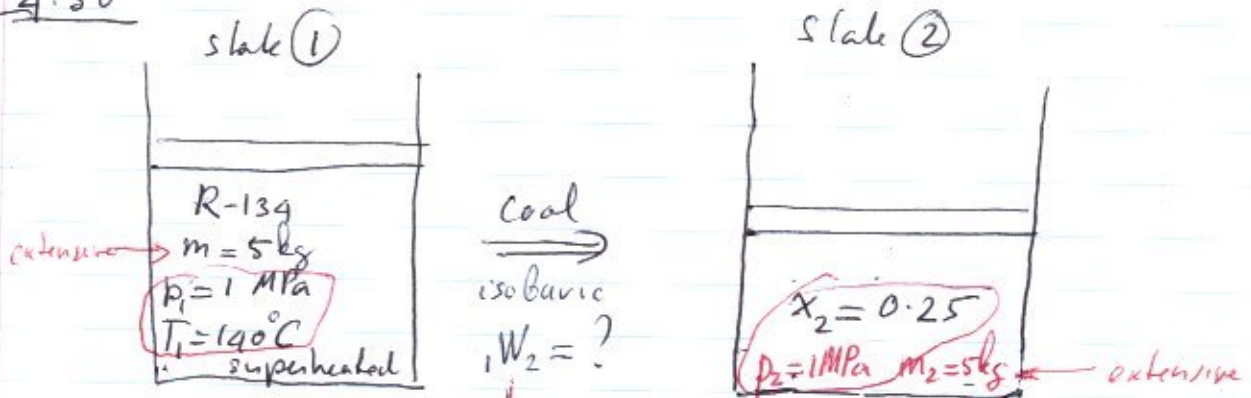 4.30
State ①
State ②
R-134
extensive
m = 5 kg
p₁ = 1 MPa
T₁ = 140°C
superheated
Cool
isobaric
₁W₂ = ?
x₂ = 0.25
p₂ = 1 MPa m₂ = 5 kg
extensive